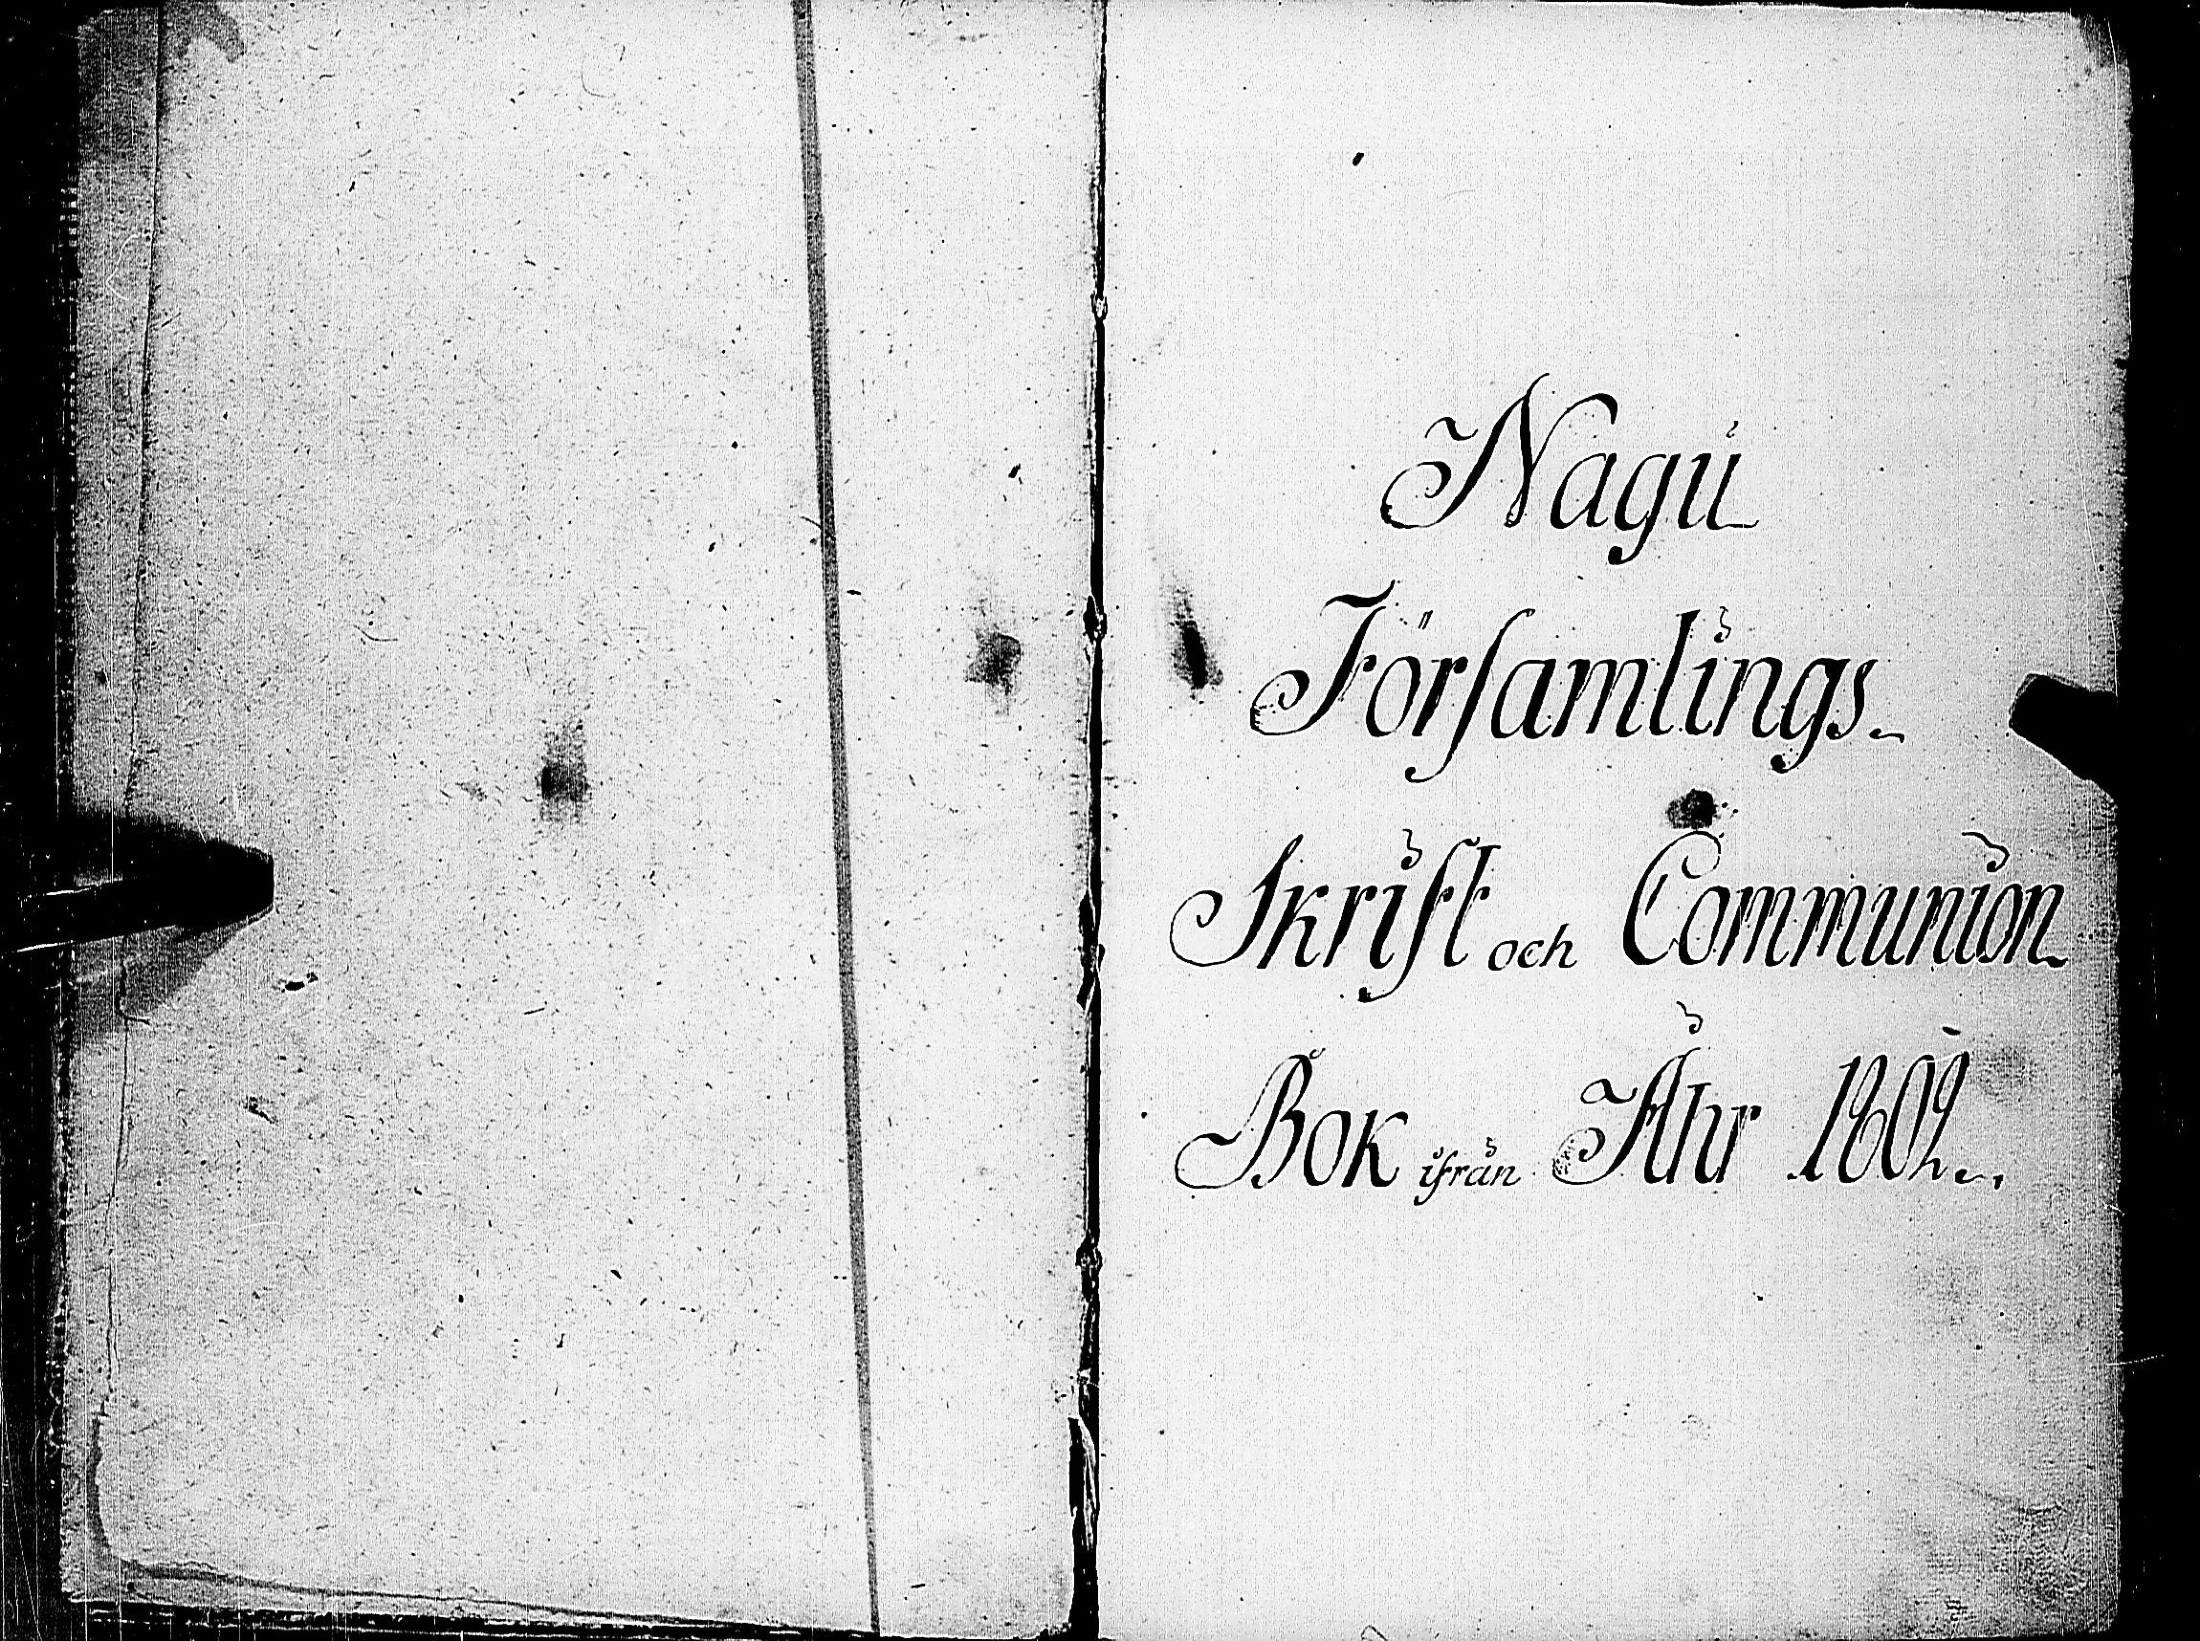 Nagu
Församlings
Skrift och Communion
Bok ifrån Åhr 1802.